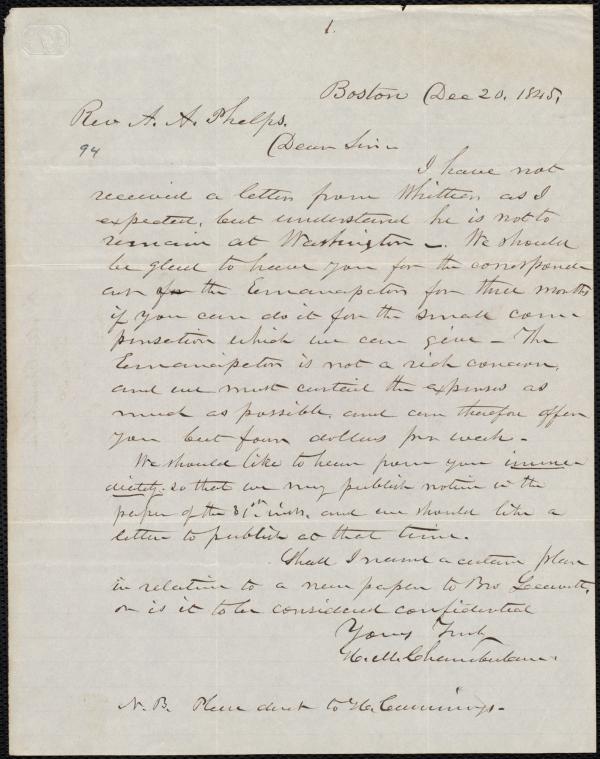 1.
Boston Dec 20. 1845.
Rev A. A. Phelps.
94
Dear Sir
I have not
received a letter from Whittier as I
expected, but understand he is not to
remain at Washington -. We should
be glad to have you for the correspond-
ent for the Emancipator for three months
if you can do it for the small com-
pensation which we can give - The
Emancipator is not a rich concern,
and we must curtail the expenses as
much as possible, and can therefore offer
you but four dollars per week -
We should like to hear from you imme-
diately. so that we may publish notice in the
paper of the 31st inst. and we should like a
letter to publish at that time.
Shall I name a certain plan
in relation to a new paper to Bro Leavitt,
or is it to be considered confidential
Yours Truly
H. M. Chamberlain.
N. B. Please direct to H. Cummings.